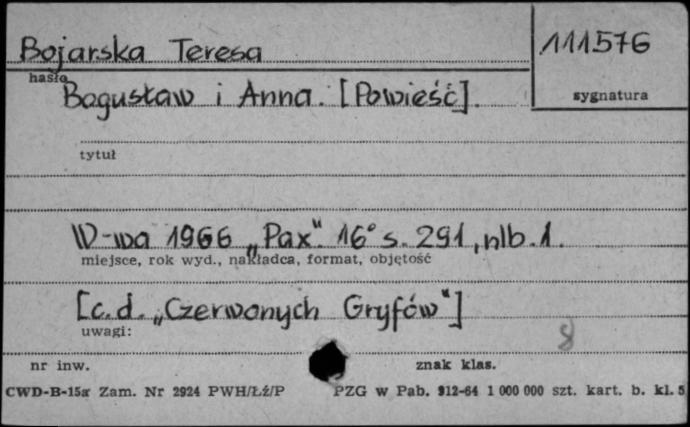 Bojarska Teresa
111576
hasło
sygnatura
Bogusław i Anna. [Powieść].
tytuł
W-wa 1966 „Pax". 16° s. 291, nlb. 1.
miejsce, rok wyd., nakładca, format, objętość
[c.d. „Czerwonych Gryfów"]
uwagi:
nr inw.
znak klas.
CWD-B-15a Zam. Nr 2924 PWH/Łź/P PZG w Pab. 912-64 1 000 000 szt. kart. b. kl. 5